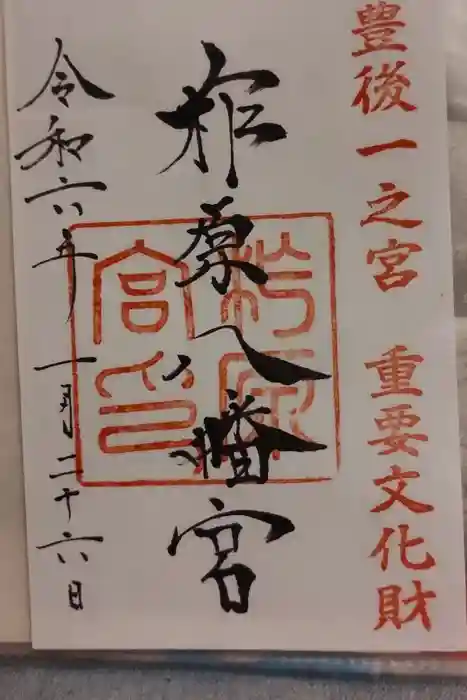 豊後一之宮 重要文化財
柞原八幡宮
柞原宮印
令和六年一月二十六日